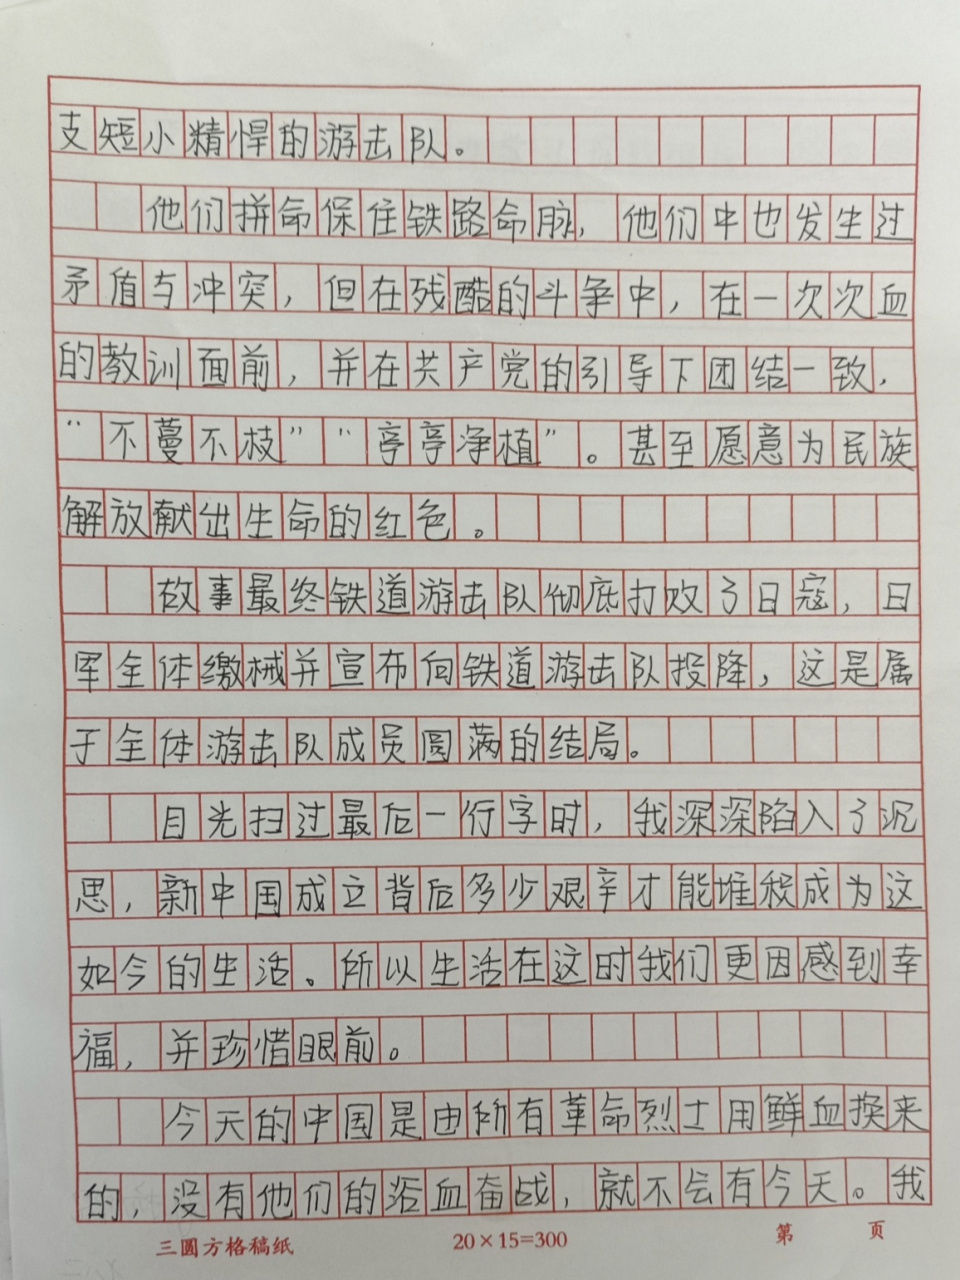 支短小精悍的游击队。
他们拼命保住铁路命脉，他们中也发生过
矛盾与冲突，但在残酷的斗争中，在一次次血
的教训面前，并在共产党的引导下团结一致，
“不蔓不枝”“亭亭净植”。甚至愿意为民族
解放献出生命的红色。
故事最终铁道游击队彻底打败了日寇，日
军全体缴械并宣布向铁道游击队投降，这是属
于全体游击队成员圆满的结局。
目光扫过最后一行字时，我深深陷入了沉
思，新中国成立背后多少艰辛才能堆积成为这
如今的生活。所以生活在这时我们更因感到幸
福，并珍惜眼前。
今天的中国是由所有革命烈士用鲜血换来
的，没有他们的浴血奋战，就不会有今天。我
三圆方格稿纸 20×15=300 第 页